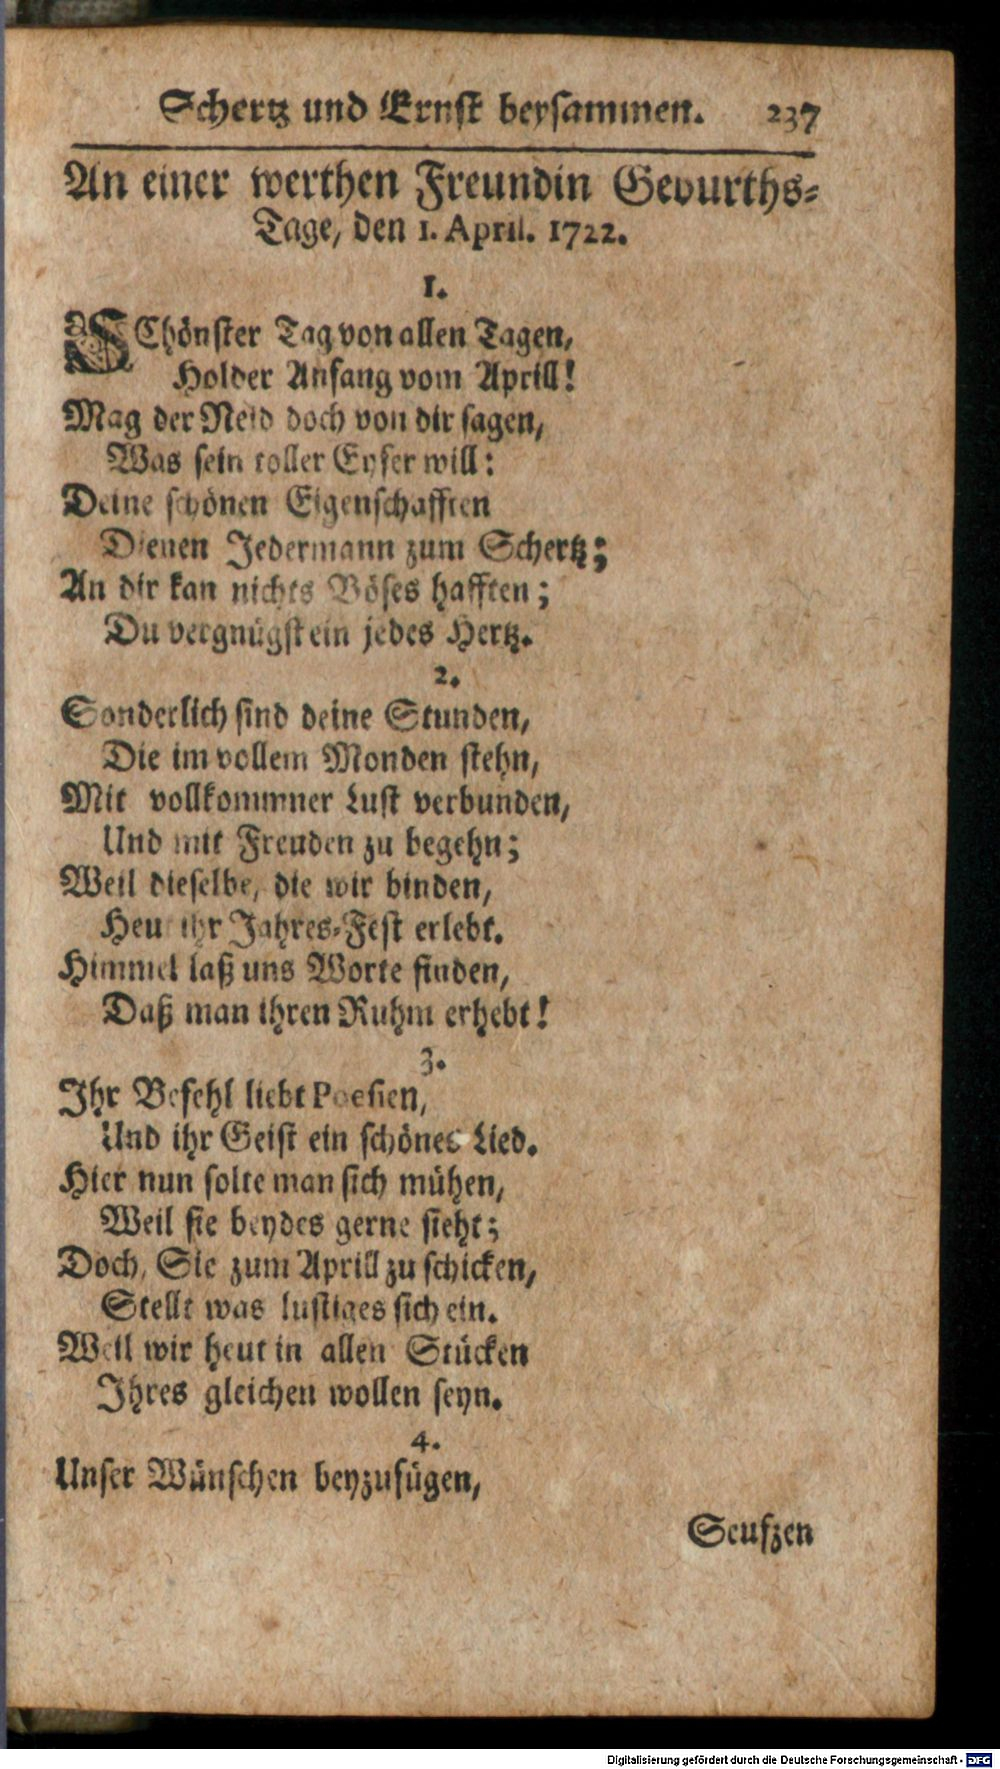 Schertz und Ernst beysammen. 237
An einer werthen Freundin Geburths-
Tage, den 1. April. 1722.
1.
SChönster Tag von allen Tagen,
Holder Anfang vom Aprill!
Mag der Neid doch von dir sagen,
Was sein toller Eyfer will:
Deine schönen Eigenschafften
Dienen Jedermann zum Schertz;
An dir kan nichts Böses hafften;
Du vergnügst ein jedes Hertz.
2.
Sonderlich sind deine Stunden,
Die im vollem Monden stehn,
Mit vollkommner Lust verbunden,
Und mit Freuden zu begehn;
Weil dieselbe, die wir binden,
Heut ihr Jahres-Fest erlebt.
Himmel laß uns Worte finden,
Daß man ihren Ruhm erhebt!
3.
Ihr Befehl liebt Poesien,
Und ihr Geist ein schönes Lied.
Hier nun solte man sich mühen,
Weil sie beydes gerne sieht;
Doch, Sie zum Aprill zu schicken,
Stellt was lustiges sich ein.
Weil wir heut in allen Stücken
Ihres gleichen wollen seyn.
4.
Unser Wünschen beyzufügen,
Seufzen
Digitalisierung gefördert durch die Deutsche Forschungsgemeinschaft - DFG